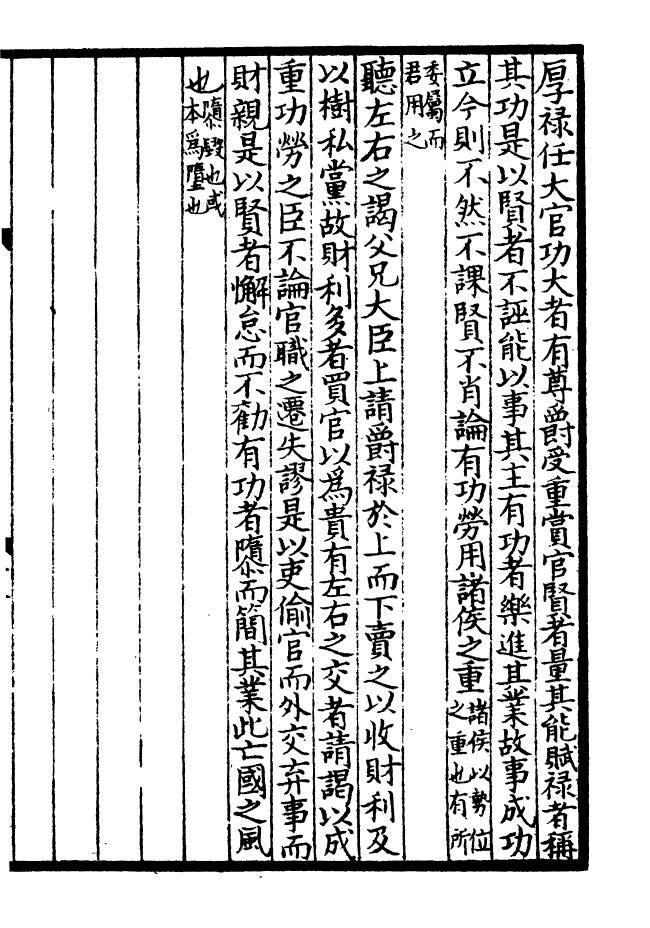 厚禄任大官功大者有尊爵受重賞官賢者量其能賦禄者稱
其功是以賢者不誣能以事其主有功者樂進其業故事成功
立今則不然不課賢不肖論有功勞用諸侯之重諸侯以勢位
之重也有所
委屬而
君用之
聽左右之謁父兄大臣上請爵禄於上而下賣之以收財利及
以樹私黨故財利多者買官以爲貴有左右之交者請謁以成
重功勞之臣不論官職之遷失謬是以吏偷官而外交弃事而
財親是以賢者懈怠而不勸有功者隳而簡其業此亡國之風
也隳毀也或
本爲墮也